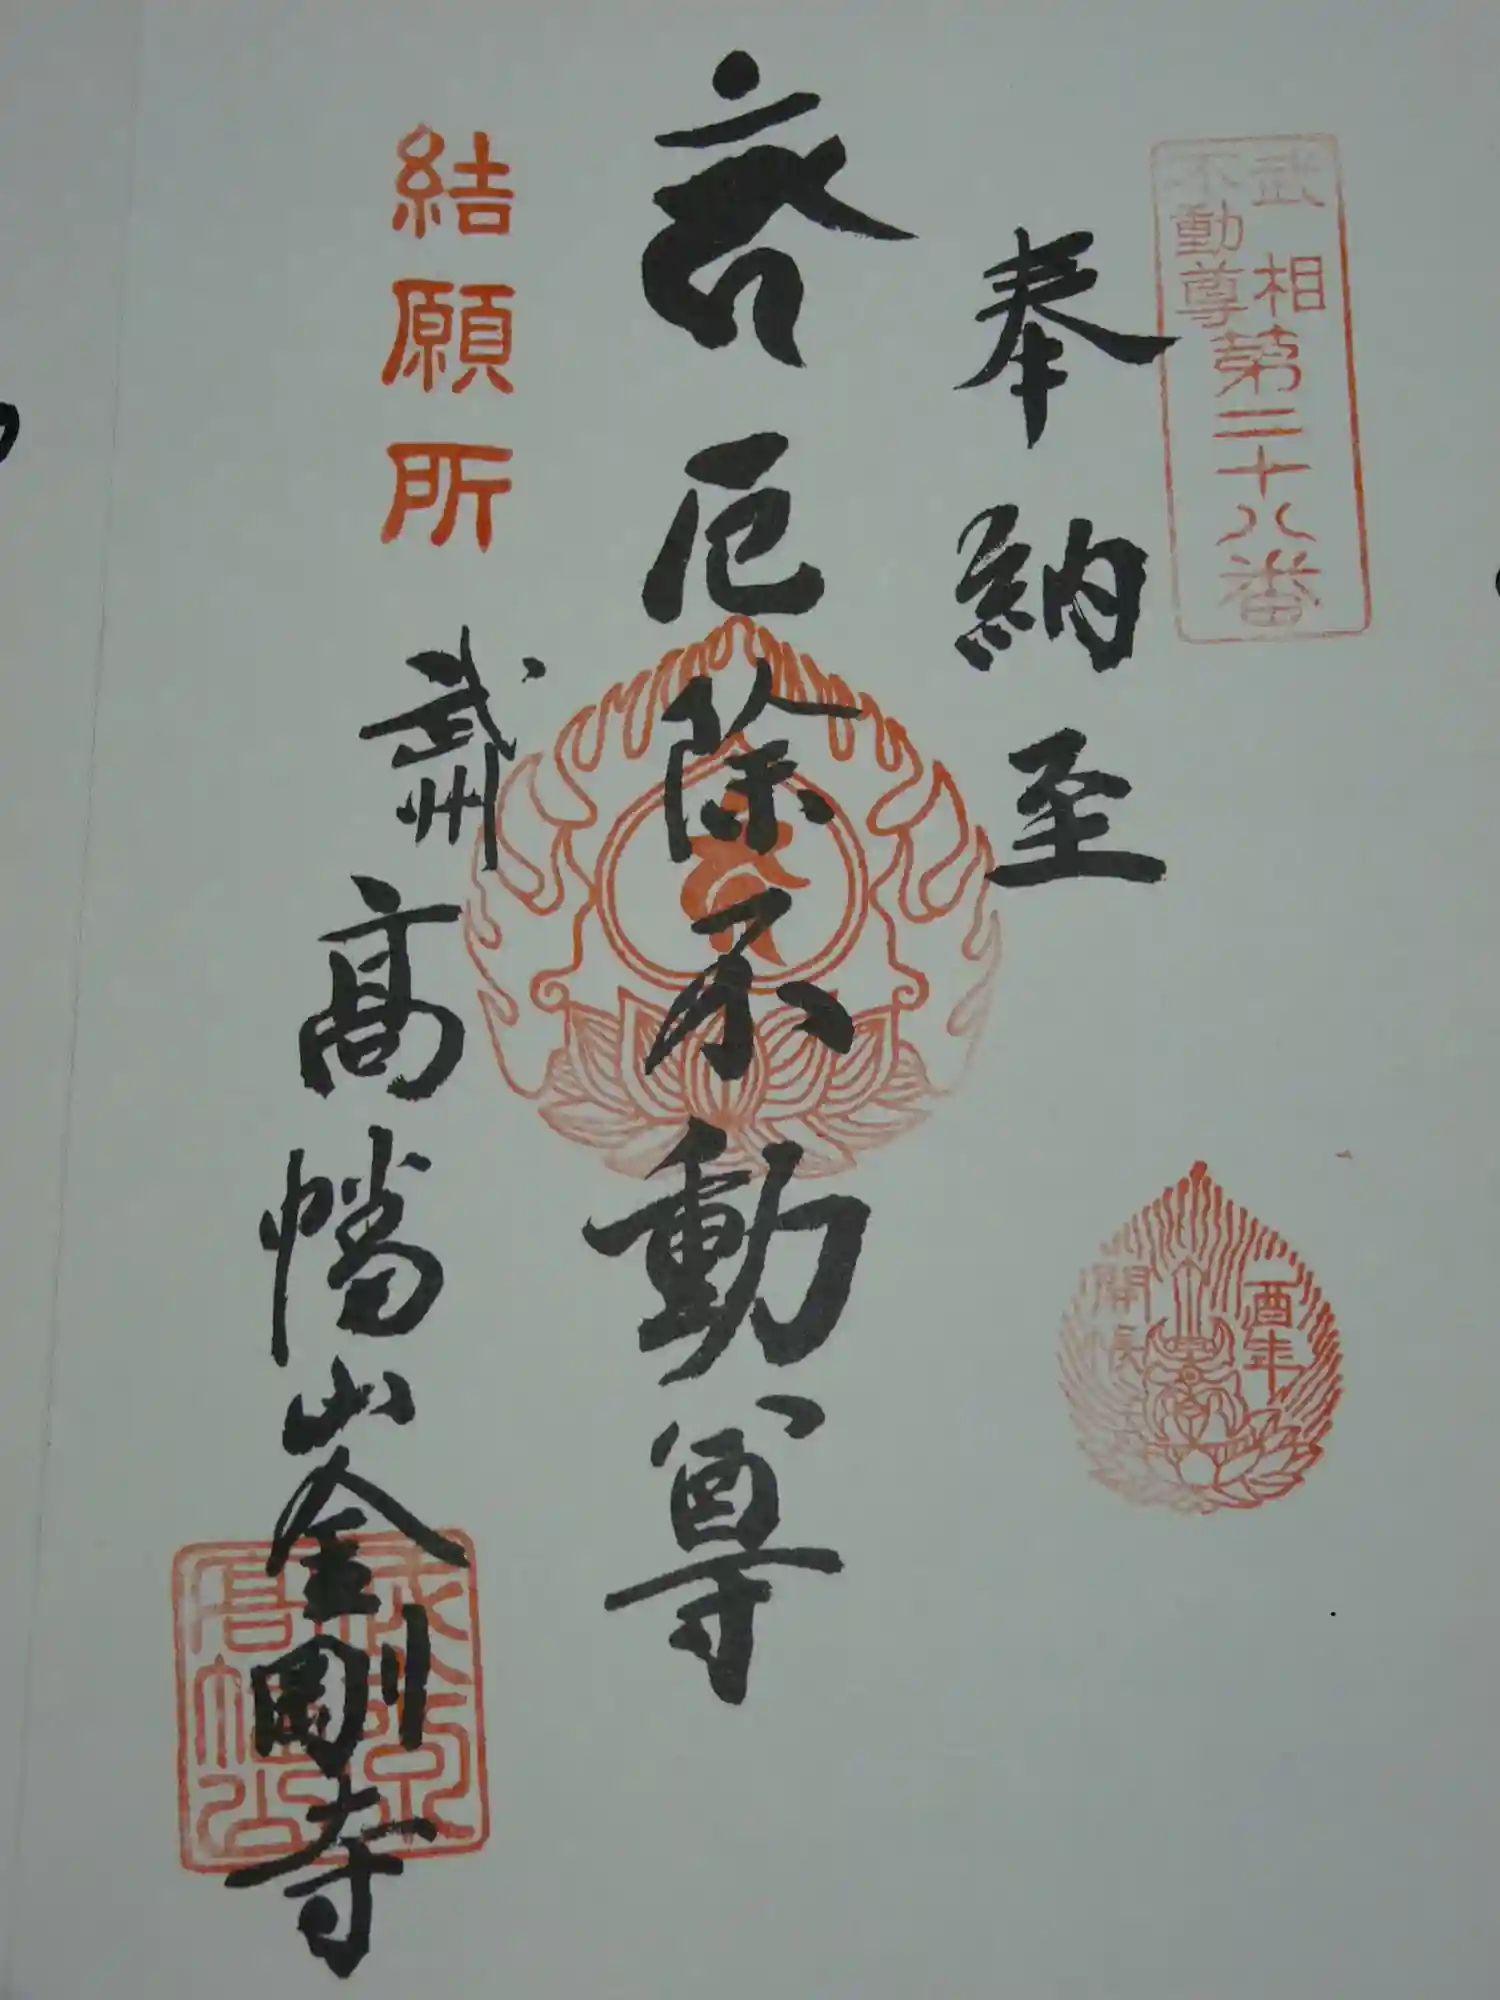 武相
不動尊
第二十八番
奉納至
厄除不動尊
結願所
武州
高幡山金剛寺
酉年
開帳